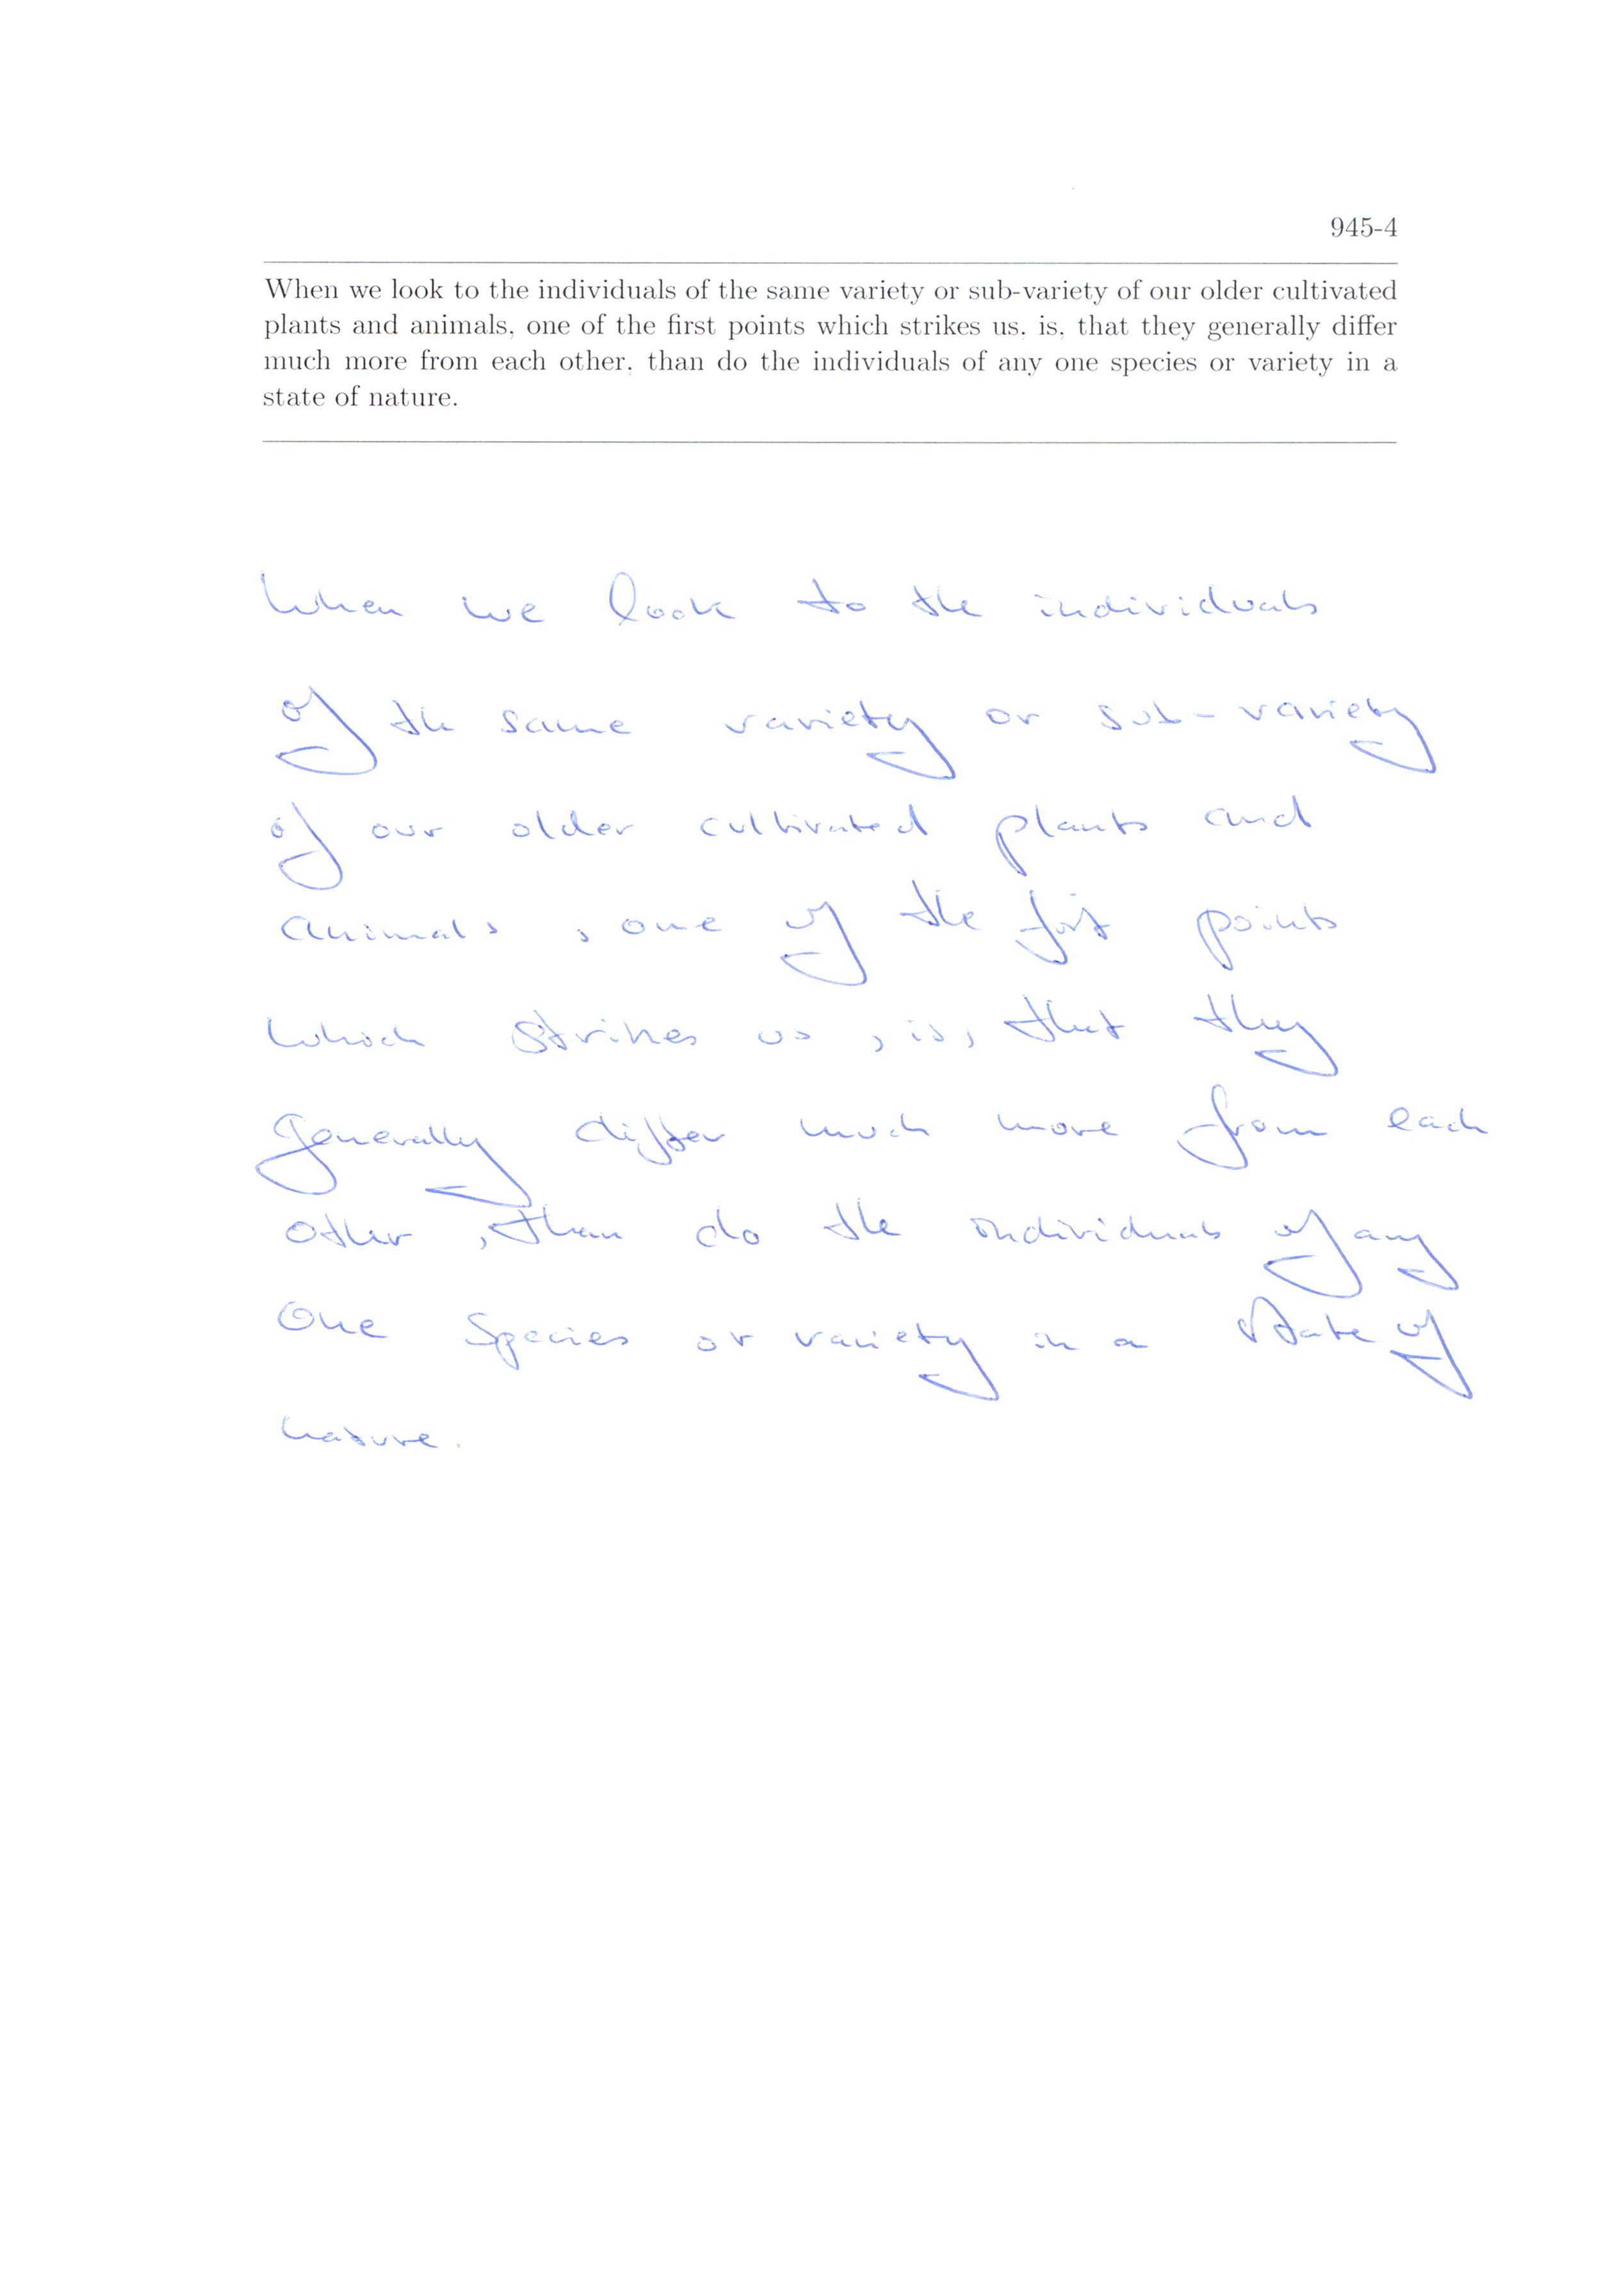 945-4
When we look to the individuals of the same variety or sub-variety of our older cultivated
plants and animals, one of the first points which strikes us, is, that they generally differ
much more from each other, than do the individuals of any one species or variety in a
state of nature.
When we look to the individuals
of the same variety or sub-variety
of our older cultivated plants and
animals, one of the first points
which strikes us, is, that they
generally differ much more from each
other, than do the individuals of any
one species or variety in a state of
nature.